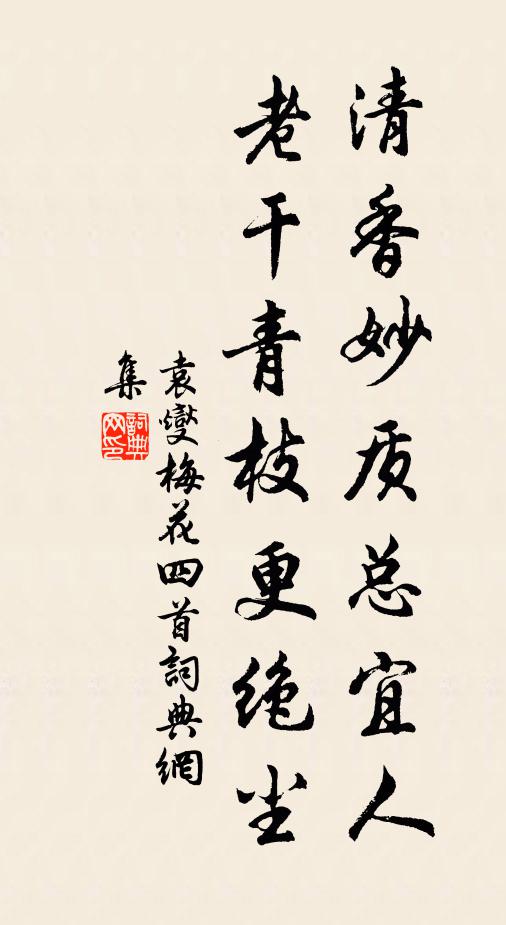 清香妙质总宜人
老干青枝更绝尘
袁燮梅花四首詞典網
集
詞典网印